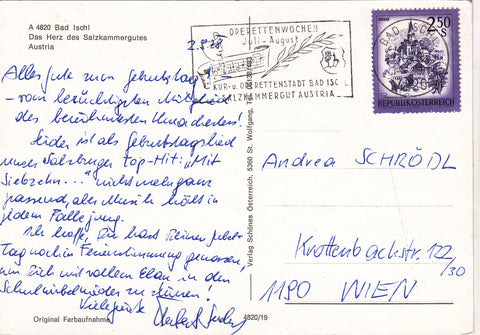 A 4820 Bad Ischl
Das Herz des Salzkammergutes
Austria
OPERETTENWOCHEN
Juli - August
KUR- u. OPERETTENSTADT BAD ISCHL
SALZKAMMERGUT AUSTRIA
BAD ISCHL
4820
2 50
S
REPUBLIK ÖSTERREICH
Alles Gute zum Geburtstag
- vom berüchtigten Mitglied
des berühmtesten
Leider ist als Geburtstagslied
unser Salzburger Top-Hit: "Mit
Siebzehn..." nicht mehr ganz
passend, aber Musik hält in
jedem Falle jung.
Ich hoffe, Du hast Deinen
Tag noch in Ferienstimmung genossen,
um Dich mit vollem Elan in den
Schulwirbel wieder zu stürzen!
Viele Grüße
Andrea SCHRÖDL
Krottenbachstr. 122
/30
1190 WIEN
Verlag Schönes Österreich, 5360 St. Wolfgang,
Original Farbaufnahme
4820/19